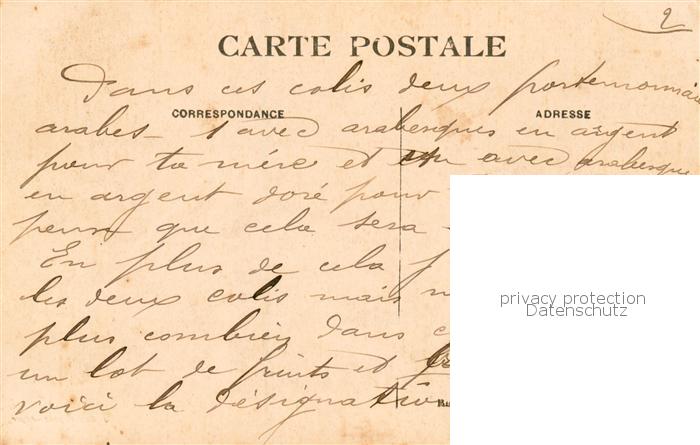 2
CARTE POSTALE
Dans ces colis deux portemonnaie
CORRESPONDANCE
ADRESSE
arabes - 1 avec arabesques en argent
pour ta mère et un avec arabesque
en argent doré pour
que cela sera
En plus de cela
les deux colis mais
privacy protection
Datenschutz
plus combien dans
un lot de fruits et
voici la désignation